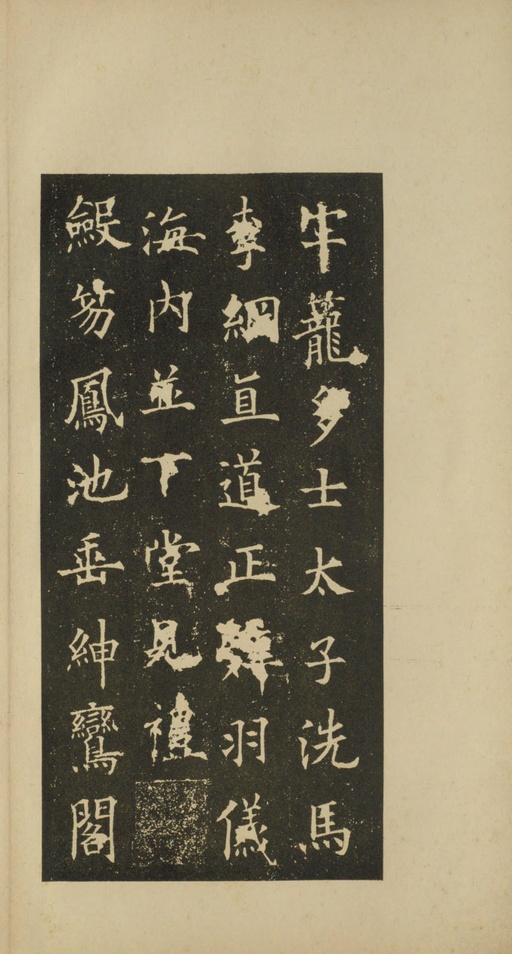 牢籠多士太子洗馬
李綱直道正辭羽儀
海內並下堂見禮
笏鳳池垂紳鸞閣